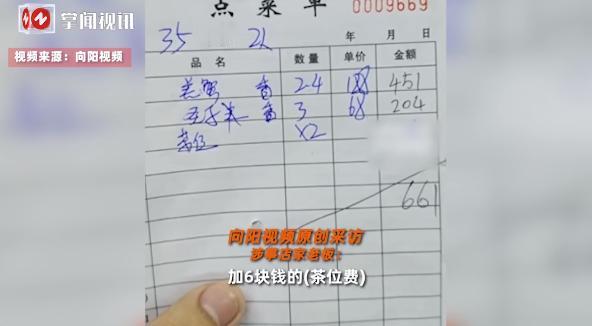 掌闻视讯
视频来源：向阳视频
点菜单 0009669
35 21 年 月 日
品名 数量 单价 金额
羔蟹 2.4 188 451
3 68 204
茶位 X2
661
向阳视频原创采访
涉事店家老板：
加6块钱的(茶位费)